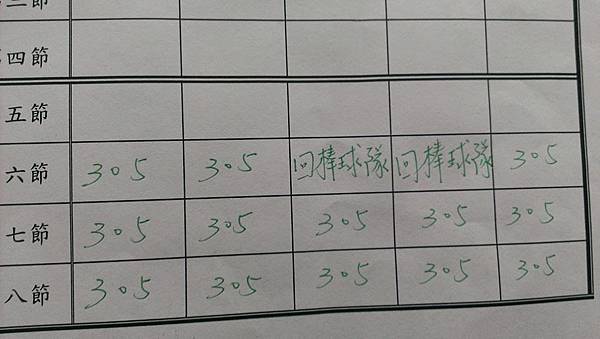 三節
第四節
五節
六節 305 305 回棒球隊 回棒球隊 305
七節 305 305 305 305 305
八節 305 305 305 305 305